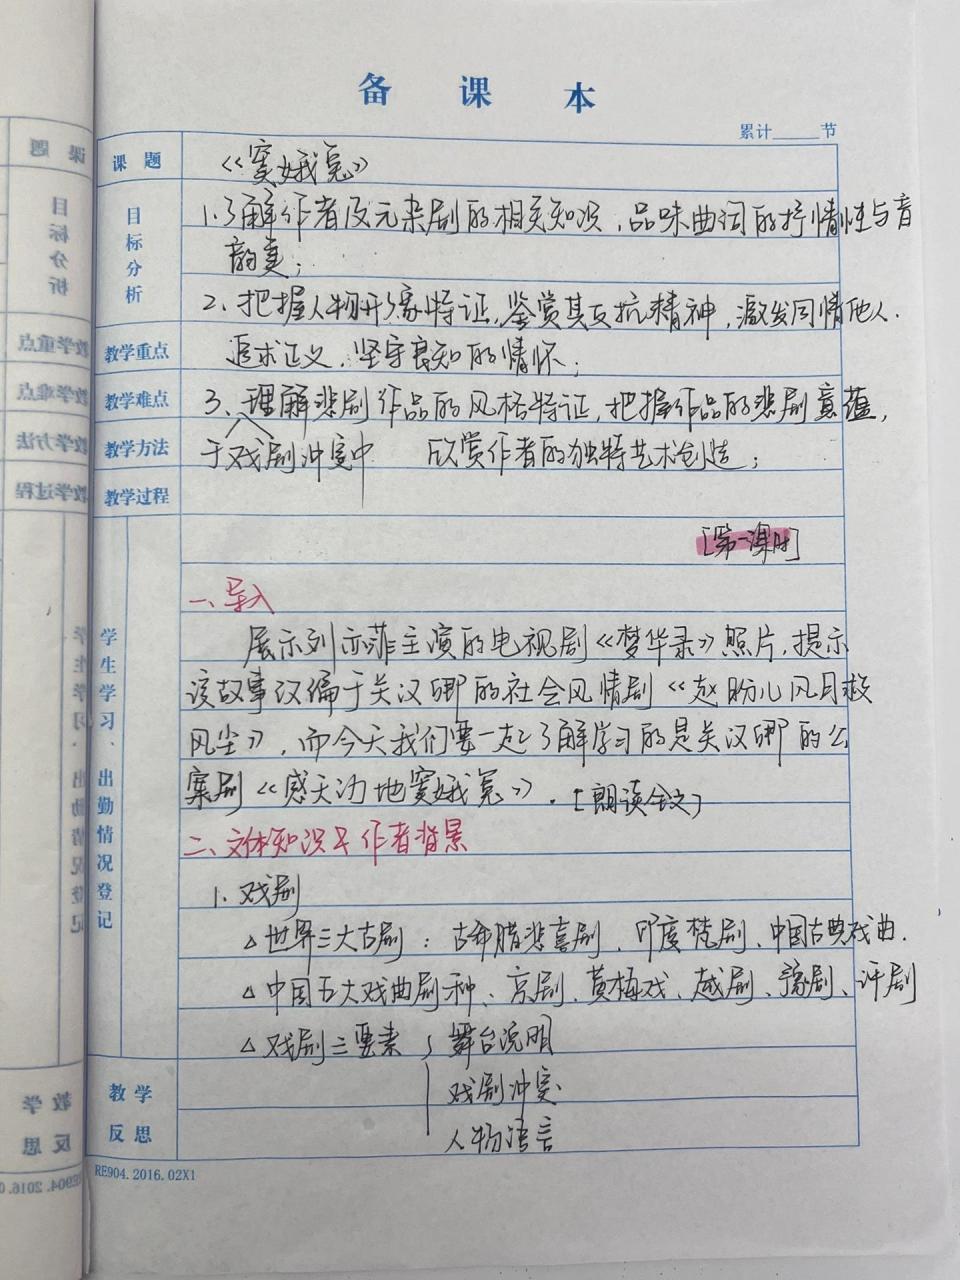 备 课 本
累计____节
课 题
《窦娥冤》
目标分析
1.了解作者及元杂剧的相关知识，品味曲词的抒情性与音
韵美；
2、把握人物形象特证，鉴赏其反抗精神，激发同情他人.
教学重点
追求正义、坚守良知的情怀；
教学难点
3、理解悲剧作品的风格特证，把握作品的悲剧意蕴，
教学方法
于戏剧冲突中 欣赏作者的独特艺术创造；
教学过程
[第一课时]
一、导入
展示刘亦菲主演的电视剧《梦华录》照片，提示
该故事改编于关汉卿的社会风情剧《赵盼儿风月救
风尘》，而今天我们要一起了解学习的是关汉卿的公
案剧《感天动地窦娥冤》.[朗读全文]
二、文体知识及作者背景
1.戏剧
△世界三大古剧：古希腊悲喜剧、印度梵剧、中国古典戏曲.
△中国五大戏曲剧种：京剧、黄梅戏、越剧、豫剧、评剧
△戏剧三要素 舞台说明
戏剧冲突
人物语言
学生学习、出勤情况登记
教学反思
RE904.2016.02X1